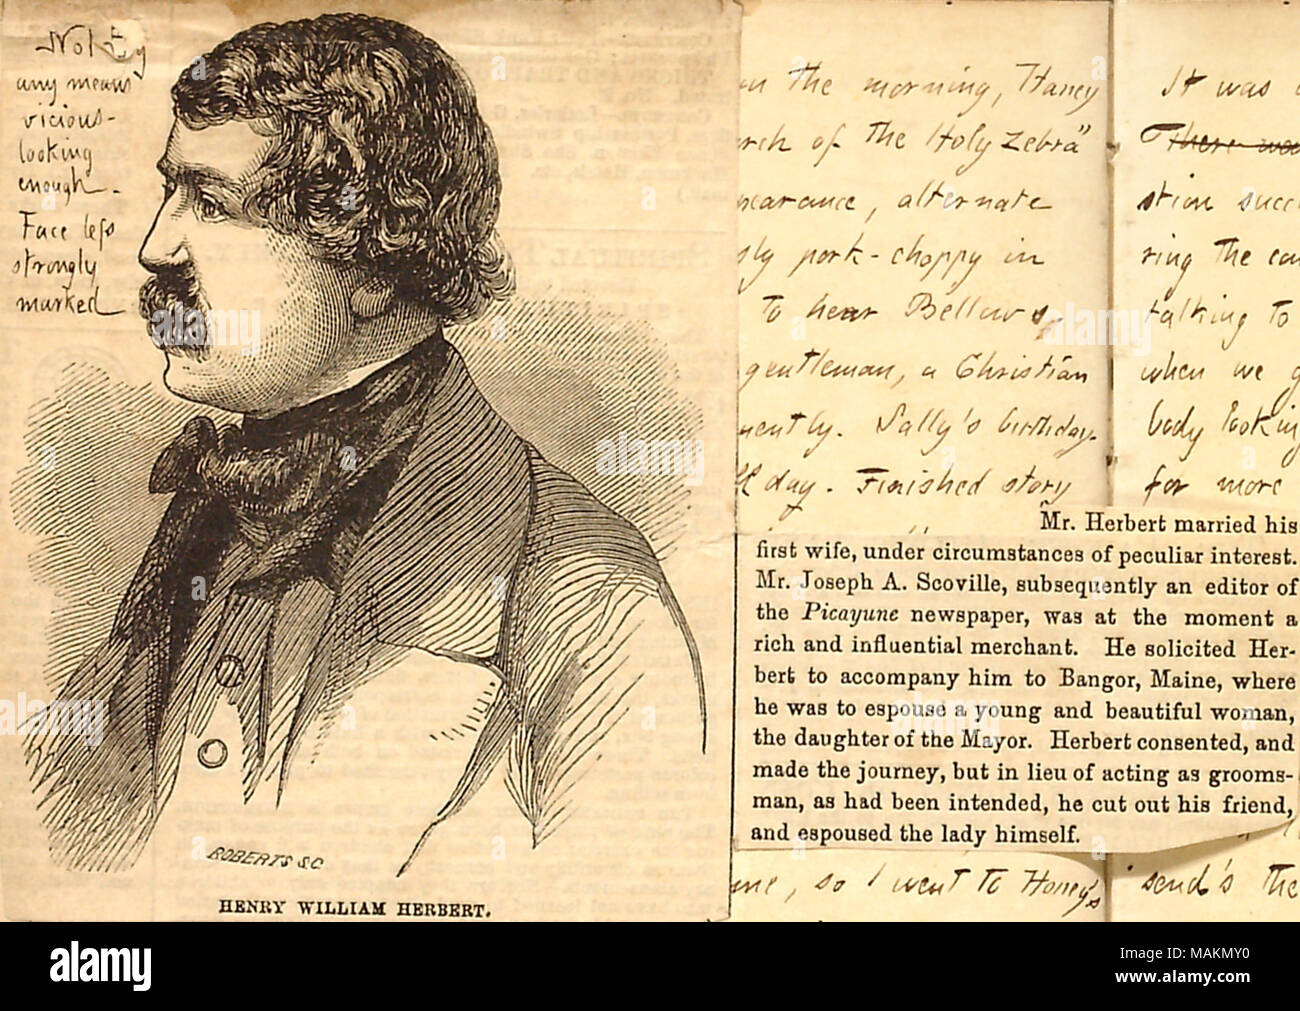 Not by
any means
vicious-
looking
enough.
Face less
strongly
marked
ROBERTS SC
HENRY WILLIAM HERBERT.
in the morning, Haney
of the Holy Zebra"
alternate
pork-choppy in
to hear Bellows.
gentleman, a Christian
Sally's birthday.
day. Finished story
It was
There
stion
ring the
talking to
when we
body
for more
"Mr. Herbert married his
first wife, under circumstances of peculiar interest.
Mr. Joseph A. Scoville, subsequently an editor of
the Picayune newspaper, was at the moment a
rich and influential merchant. He solicited Her-
bert to accompany him to Bangor, Maine, where
he was to espouse a young and beautiful woman,
the daughter of the Mayor. Herbert consented, and
made the journey, but in lieu of acting as grooms-
man, as had been intended, he cut out his friend,
and espoused the lady himself.
so I went to Honey's
send's the
alamy
Image ID: MAKMY0
www.alamy.com